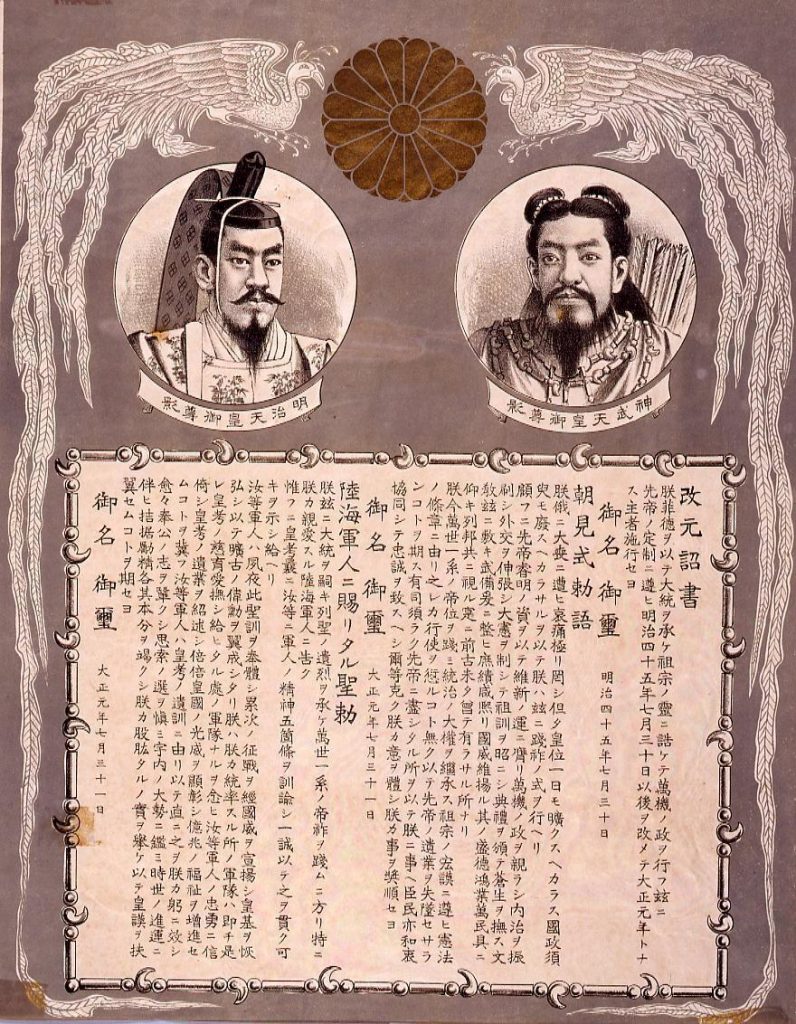 神武天皇御尊影
明治天皇御尊影
改元詔書
朕菲德ヲ以テ大統ヲ承ケ祖宗ノ靈ニ誥ケテ萬機ノ政ヲ行フ玆ニ
先帝ノ定制ニ遵ヒ明治四十五年七月三十日以後ヲ改メテ大正元年トナ
ス主者施行セヨ
御名御璽
明治四十五年七月三十日
朝見式勅語
朕俄ニ大喪ニ遭ヒ哀痛極リ罔シ但タ皇位一日モ曠クスヘカラス國政須
臾モ廢スヘカラサルヲ以テ朕ハ玆ニ踐祚ノ式ヲ行ヘリ
顧フニ先帝睿明ノ資ヲ以テ維新ノ運ニ膺リ萬機ノ政ヲ親ラシ內治ヲ振
刷シ外交ヲ伸張シ大憲ヲ制シテ祖訓ヲ昭ニシ典禮ヲ頒テ蒼生ヲ撫ス文
敎玆ニ敷キ武備爰ニ整ヒ庶績咸熙リ國威維揚ル其ノ盛德鴻業萬民具ニ
仰キ列邦共ニ視ル寔ニ前古未タ曾テ有ラサル所ナリ
朕今萬世一系ノ帝位ヲ踐ミ統治ノ大權ヲ繼承ス祖宗ノ宏謨ニ遵ヒ憲法
ノ條章ニ由リ之レカ行使ヲ愆ルコト無ク以テ先帝ノ遺業ヲ失墜セサラ
ンコトヲ期ス有司須ラク先帝ニ盡シタル所ヲ以テ朕ニ事ヘ臣民亦和衷
協同シテ忠誠ヲ致スヘシ爾等克ク朕カ意ヲ體シ朕カ事ヲ奬順セヨ
御名御璽
大正元年七月三十一日
陸海軍人ニ賜リタル聖勅
朕玆ニ大統ヲ嗣キ列聖ノ遺烈ヲ承ケ萬世一系ノ帝祚ヲ踐ムニ方リ特ニ
朕カ親愛スル陸海軍人ニ告ク
惟フニ皇考曩ニ汝等ニ軍人ノ精神五箇條ヲ訓諭シ一誠以テ之ヲ貫ク可
キヲ示シ給ヘリ
汝等軍人ハ夙夜此聖訓ヲ奉體シ累次ノ征戰ヲ經國威ヲ宣揚シ皇基ヲ恢
弘シ以テ曠古ノ偉勳ヲ翼成シタリ朕ハ朕カ統率スル所ノ軍隊ハ卽チ是
レ皇考ノ慈育愛撫シ給ヒタル處ノ軍隊ナルヲ念ヒ汝等軍人ノ忠勇ニ信
倚シ皇考ノ遺業ヲ紹述シ倍倍皇國ノ光威ヲ顯彰シ億兆ノ福祉ヲ增進セ
ムコトヲ冀フ汝等軍人ハ皇考ノ遺訓ニ由リ以テ直ニ之ヲ朕カ躬ニ效シ
愈々奉公ノ志ヲ鞏クシ思索ノ選ヲ愼ミ宇內ノ大勢ニ鑑ミ時世ノ進運ニ
伴ヒ拮据勵精各其本分ヲ竭クシ朕カ股肱タルノ實ヲ擧ケ以テ皇謨ヲ扶
翼セムコトヲ期セヨ
御名御璽
大正元年七月三十一日